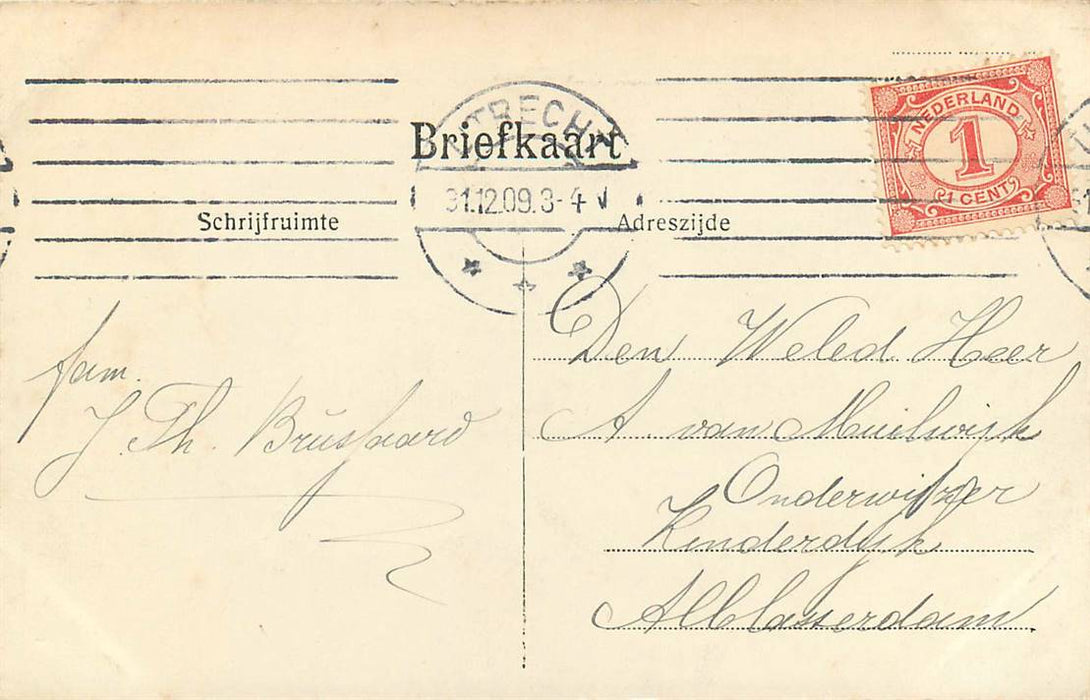 UTRECHT
Briefkaart
31.12.09.3-4 V
NEDERLAND
1
1 CENT
Schrijfruimte
Adreszijde
fam.
J. Th. Brussaard
Den Weled Heer
A. van Muilwijk
Onderwijzer
Kinderdijk
Alblasserdam